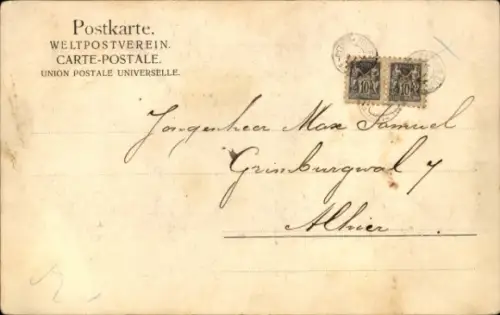 Postkarte.
WELTPOSTVEREIN.
CARTE-POSTALE.
UNION POSTALE UNIVERSELLE.
10 10
Jongenheer Max Samuel
Grimburgwal 7
Alhier